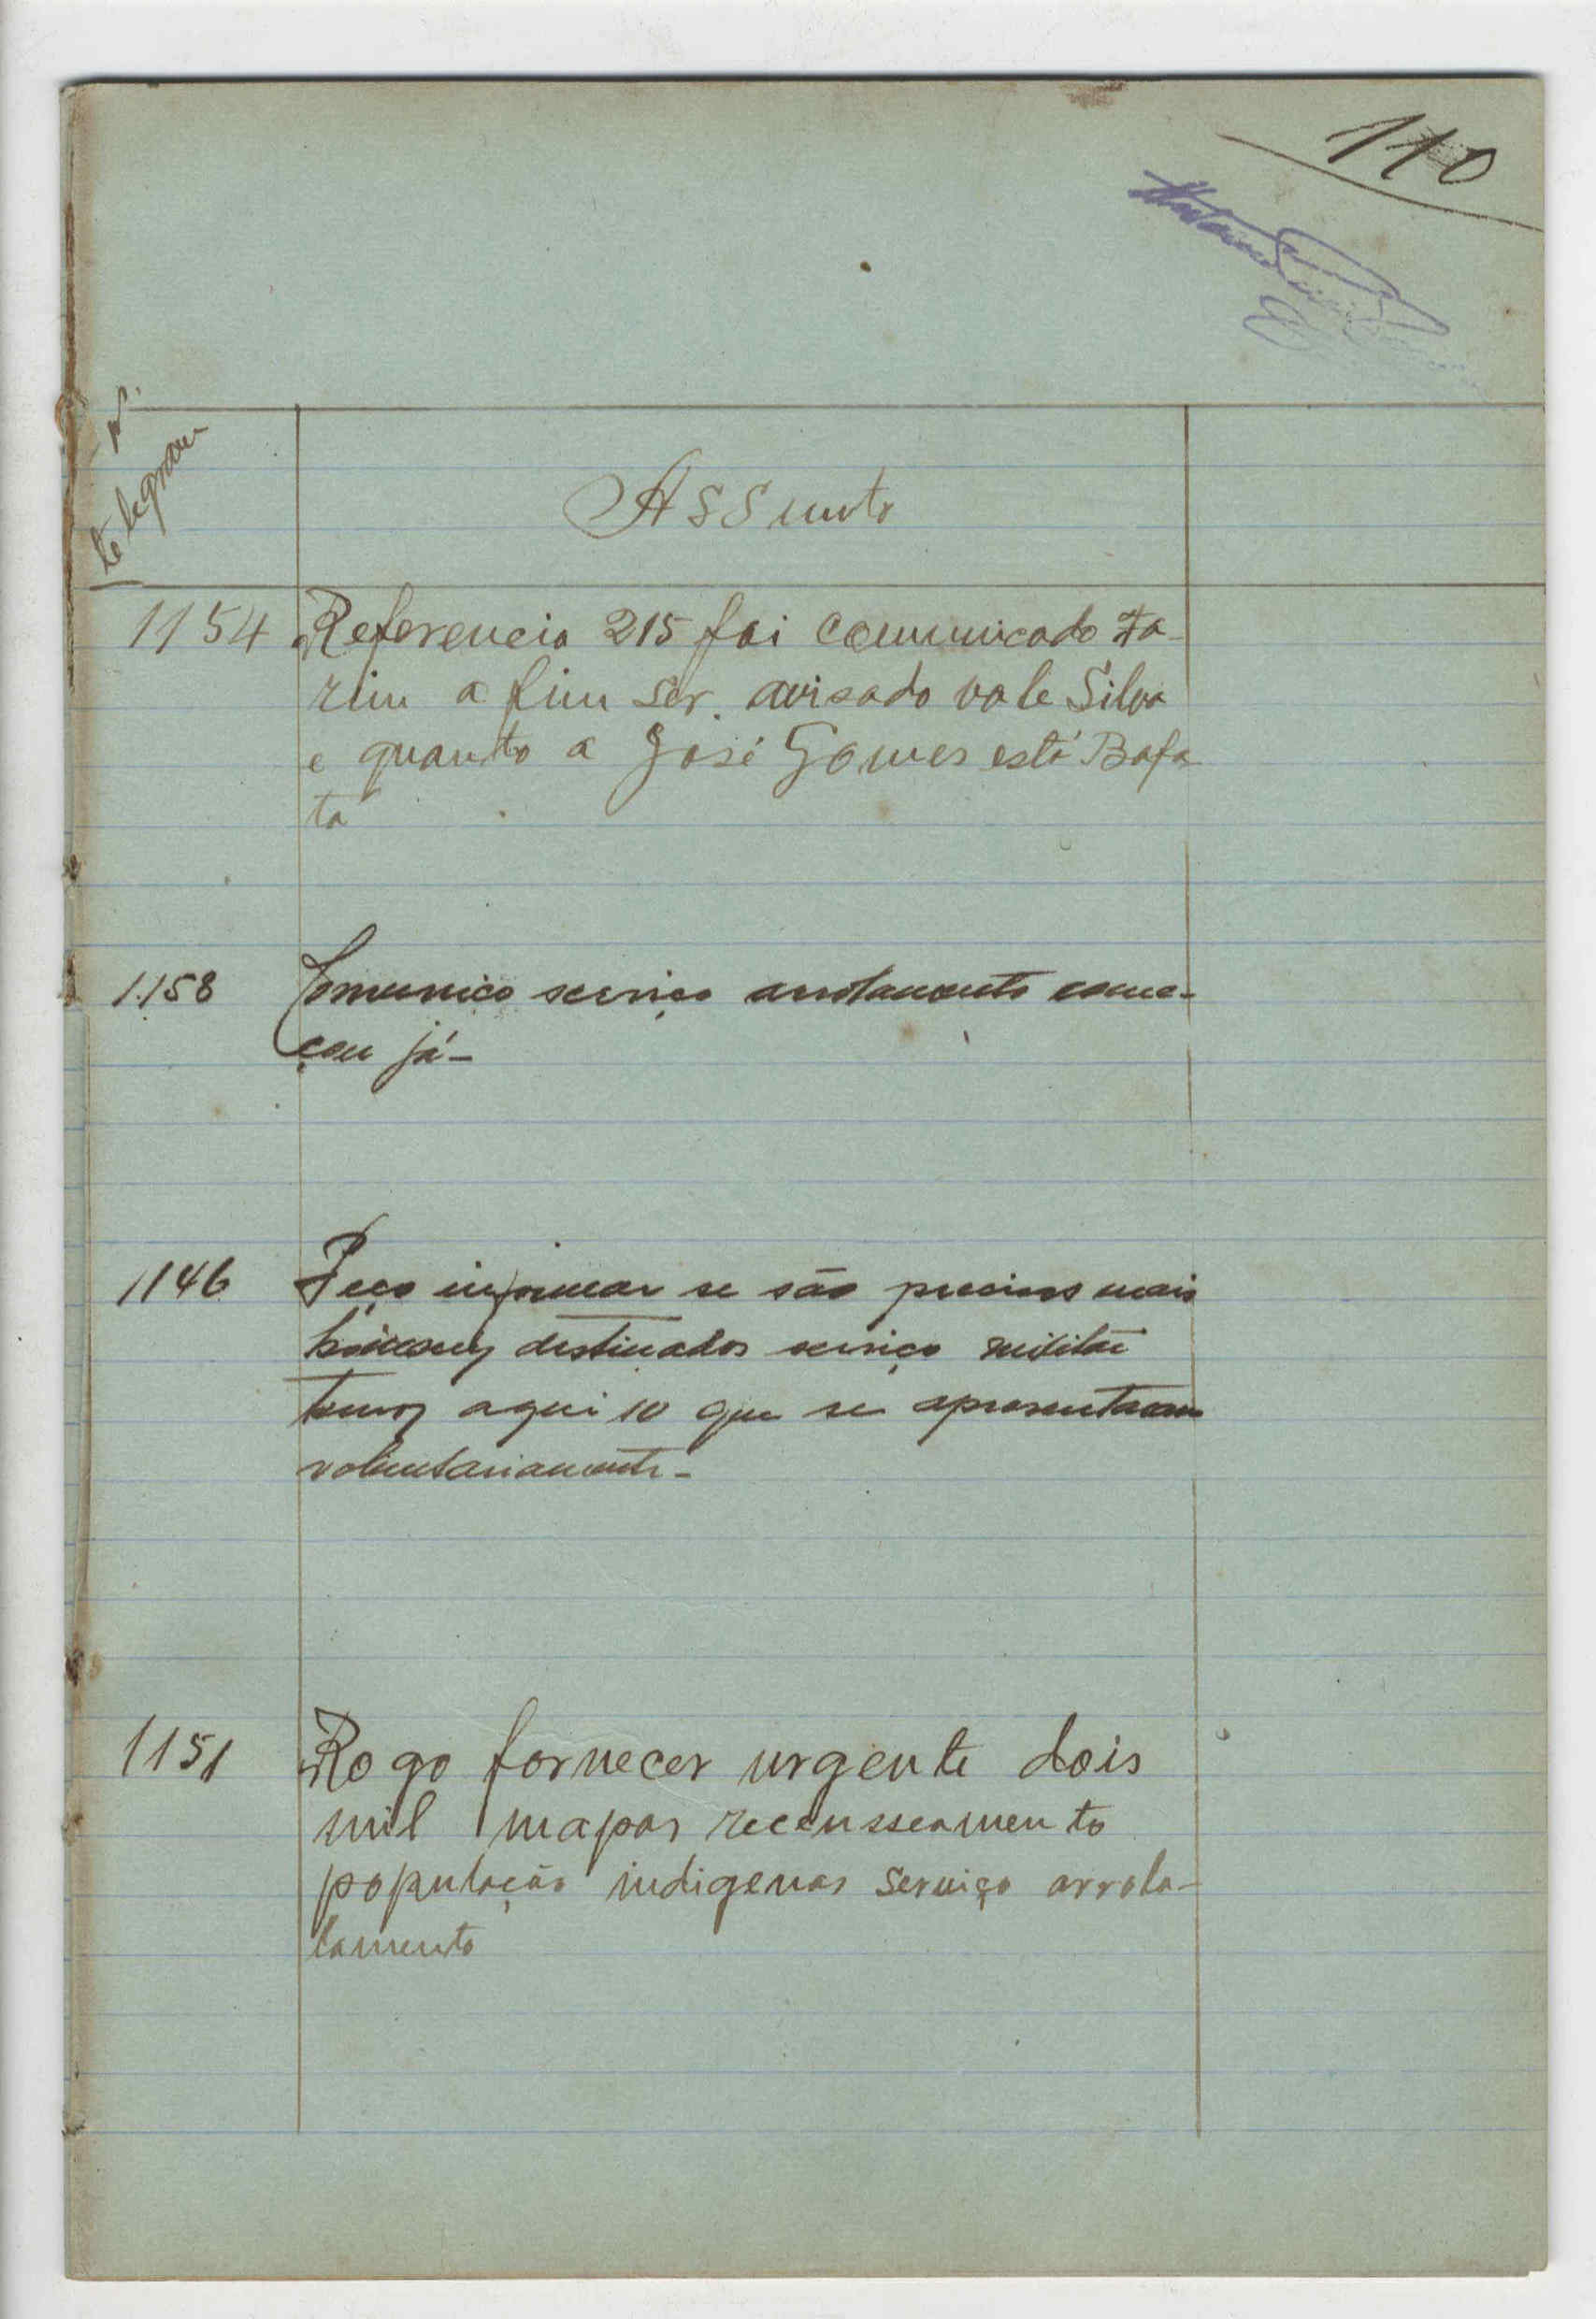 110
Nº
telegram
Assunto
1154 Referencia 215 foi comunicado Fa-
rim a fim ser avisado vale Silva
e quanto a José Gomes está Bafa
ta
1158 Comunico serviço arrolamento come-
çou já-
1146 Peço informar se são precisos mais
homens destinados serviço militar
temos aqui 10 que se apresentaram
voluntariamente-
1151 Rogo fornecer urgente dois
mil mapas recensseamento
população indigenas serviço arrola-
lamento